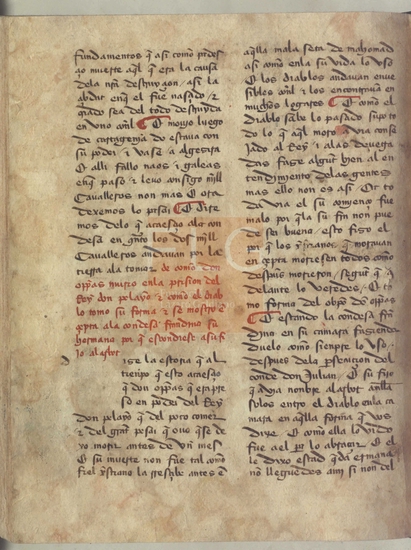 fundamentos q̃ asi como p̃des
go muerte aq̃l q̃ era la causa
dela nr̃a destruyçon / asi la
çibdat enq̃ el fue nasçido τ
criado sea del todo destruyda
en vno conel · E mouio luego
de cartagenia do estaua con
su poder τ vase a algezira
E alli fallo naos τ galeas
enq̃ paso τ leuo consigo mill
Caualleros non mas E ora
dexemos lo yr así E dire
mos delo q̃ acaesçio ala con
desa en quãto los dos mill
Caualleros andauan por la
tierra ala tomar de como don
oppas murio enla prision del
Rey don pelayo τ como el diab
lo tomo su forma τ se mostro en
çepta ala condesa frandina su
hermana por q̃ escondiese asu fi
jo alarbot
ize la estoria q̃ al
tienpo q̃ esto acaesçio
q̃ don oppas q̃ era pre
so en poder del Rey
Don pelayo q̃ del poco comer
τ del grãt pesar q̃ ouo q̃ se de
xo morir antes de vn mes
E su muerte non fue tal como
aq̃lla mala seta de mahomad
asi como enla su vida lo vso
E los diablos andauan enue
sibles conel τ los encontraua en
muchos logares E como el
diablo sabe lo pasado supo to
do lo q̃ aq̃l moro
jado al Rey τ alas de vega
das fase algũt bien al en
tendimiento delas gentes
mas ello non es asi
da via el su comienço fue
malo por q̃ la su fin non pue
de ser buena esto fiso el
por q̃ los xp̃ianos q̃ morauan
en çepta moriesen todos como
despues morieron segũt q̃ a
delante lo veredes E to
mo forma del obpo dõ oppas
E estando la condesa fran
dina en su camara faziendo
duelo como sienpre lo vso
despues dela
conde don Julian E su fijo
q̃ avia nonbre alarbot conella
solos entro el diablo enla ca
mara en aq̃lla forma q̃ vos
dixe E como ella lo vido
fue ael por lo abraçar E el
le dixo estad q̃da ermana
no lleguedes ami si non del